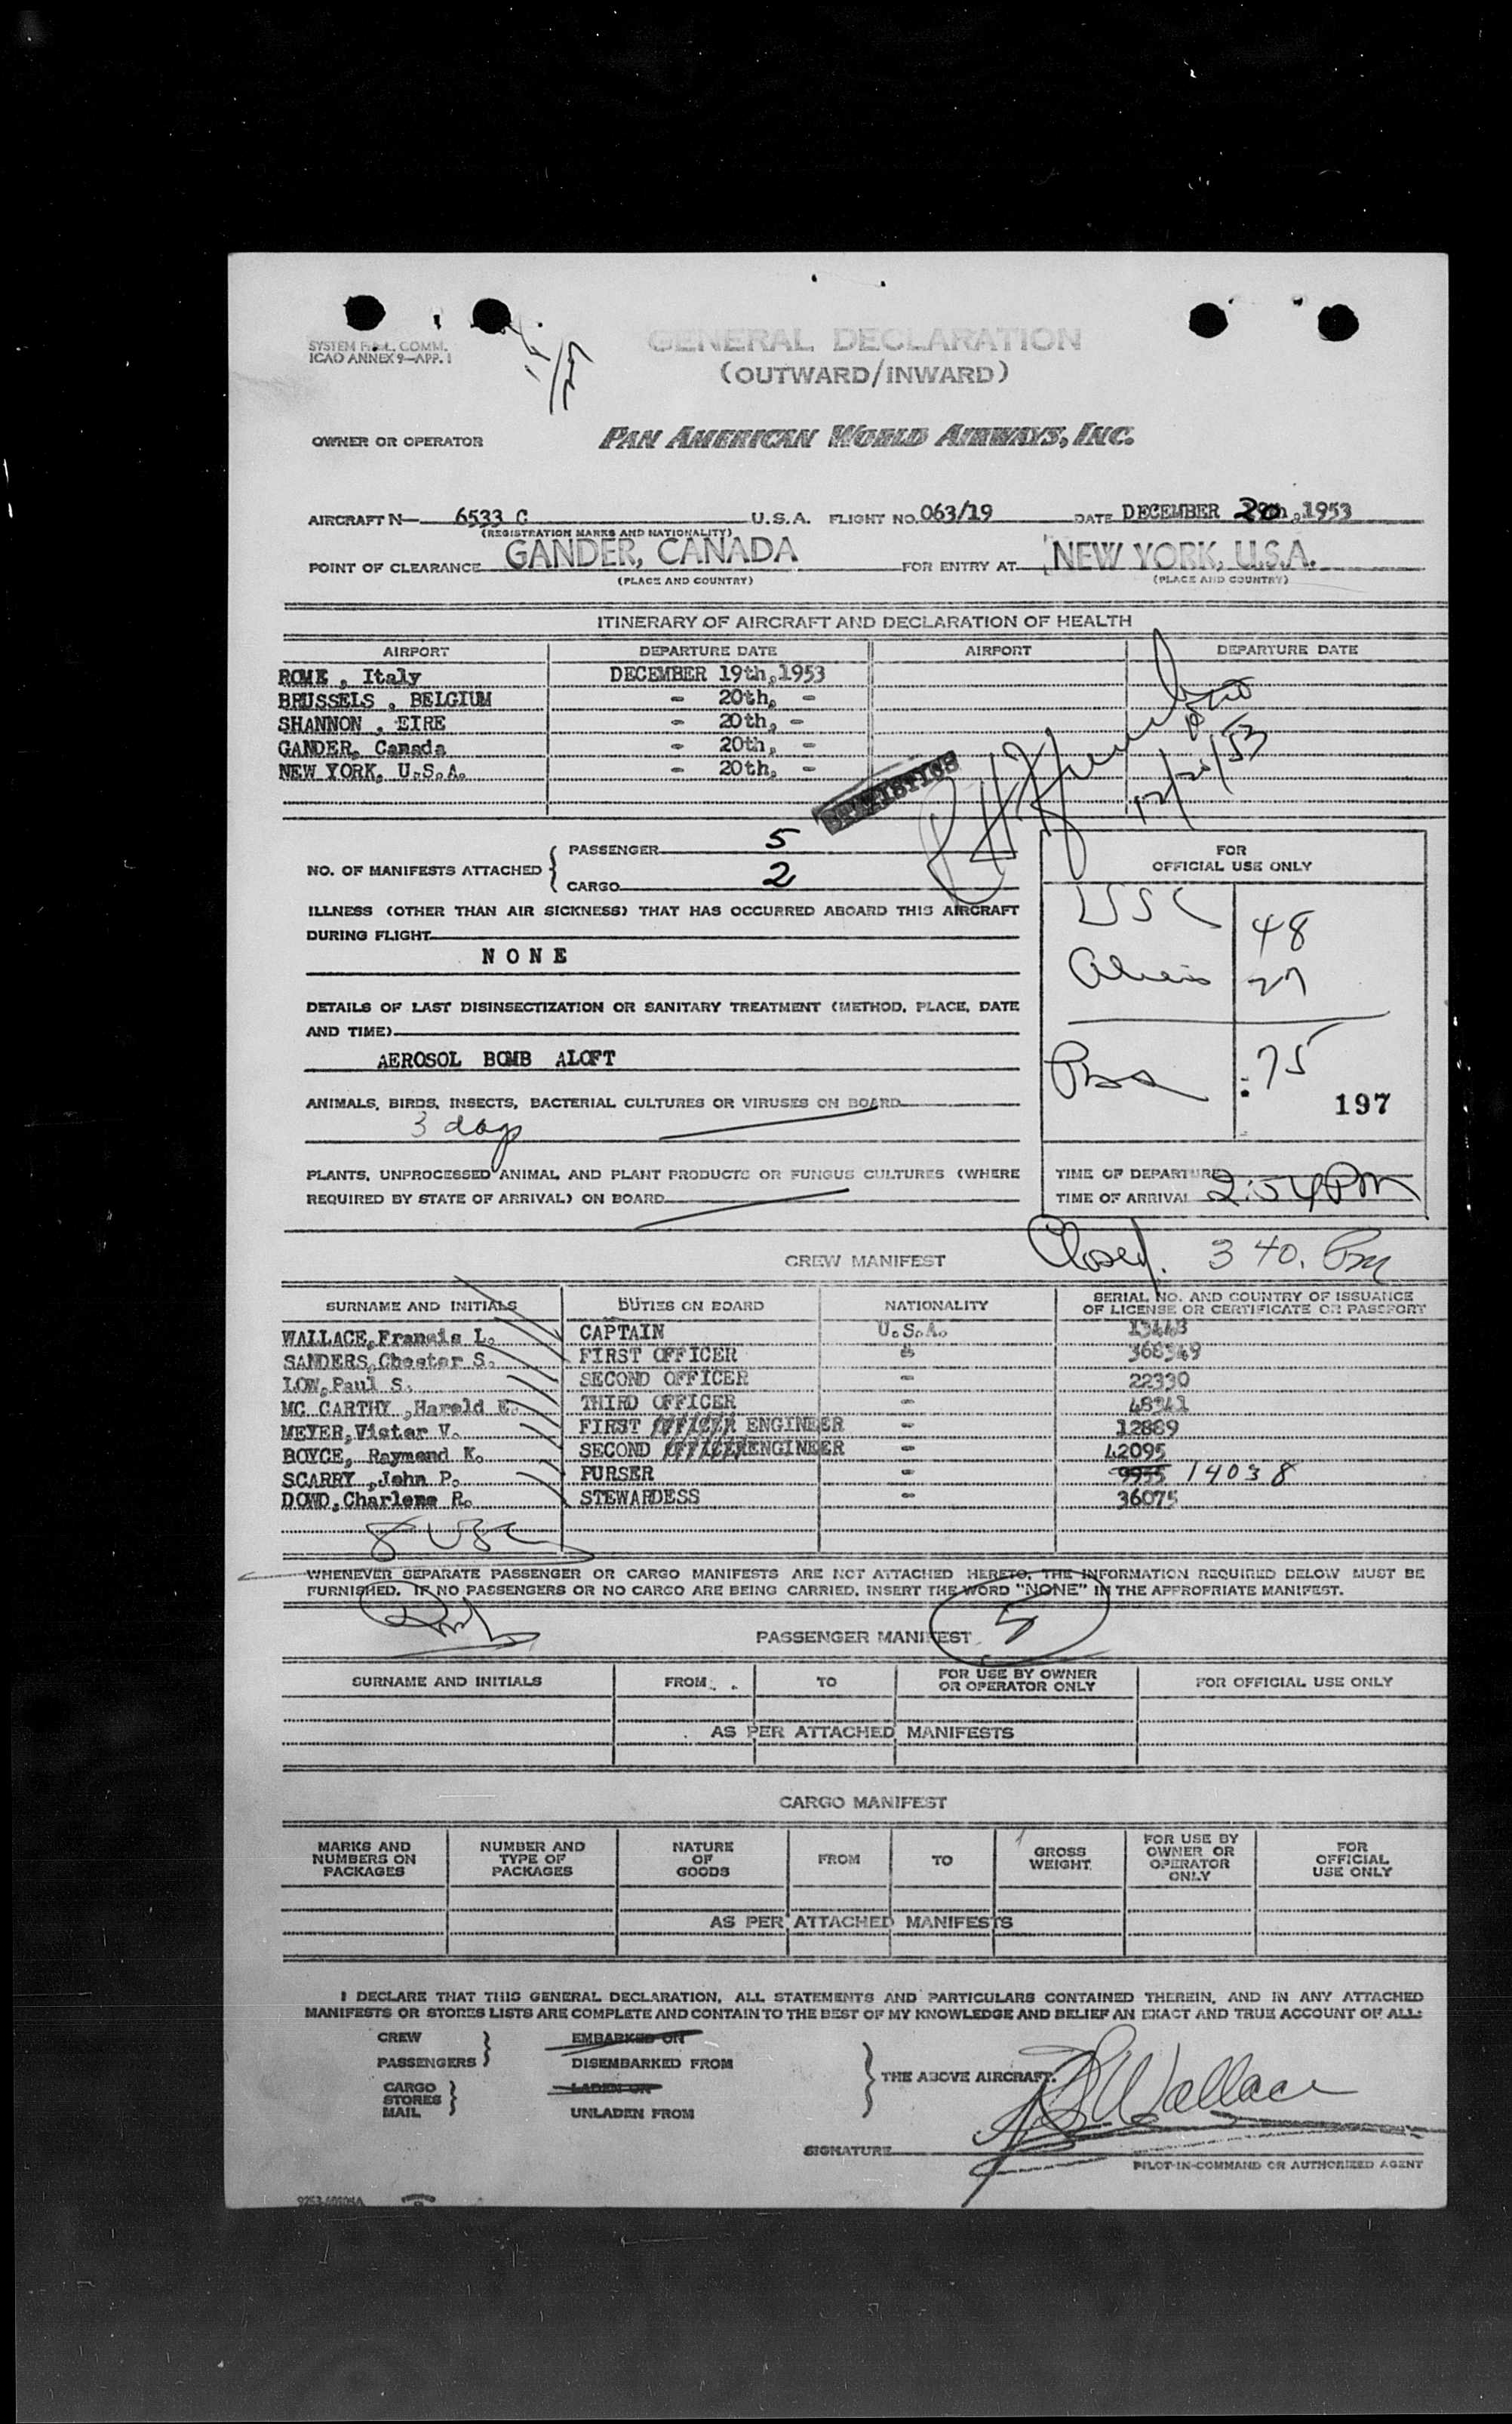 SYSTEM F&L. COMM.
ICAO ANNEX 9—APP. 1
GENERAL DECLARATION
(OUTWARD/INWARD)
OWNER OR OPERATOR PAN AMERICAN WORLD AIRWAYS, INC.
AIRCRAFT N— 6533 C U.S.A. FLIGHT NO. 063/19 DATE DECEMBER 20, 1953
(REGISTRATION MARKS AND NATIONALITY)
POINT OF CLEARANCE GANDER, CANADA FOR ENTRY AT NEW YORK, U.S.A.
(PLACE AND COUNTRY) (PLACE AND COUNTRY)
ITINERARY OF AIRCRAFT AND DECLARATION OF HEALTH
AIRPORT DEPARTURE DATE AIRPORT DEPARTURE DATE
ROME , Italy DECEMBER 19th,1953
BRUSSELS , BELGIUM - 20th, -
SHANNON , EIRE - 20th, -
GANDER, Canada - 20th, -
NEW YORK, U.S.A. - 20th, -
STATISTICS
12/20/53
NO. OF MANIFESTS ATTACHED { PASSENGER 5
CARGO 2
FOR
OFFICIAL USE ONLY
USC 48
Aliens 27
Pass 75
197
ILLNESS (OTHER THAN AIR SICKNESS) THAT HAS OCCURRED ABOARD THIS AIRCRAFT
DURING FLIGHT
NONE
DETAILS OF LAST DISINSECTIZATION OR SANITARY TREATMENT (METHOD, PLACE, DATE
AND TIME)
AEROSOL BOMB ALOFT
ANIMALS, BIRDS, INSECTS, BACTERIAL CULTURES OR VIRUSES ON BOARD
3 dogs
PLANTS, UNPROCESSED ANIMAL AND PLANT PRODUCTS OR FUNGUS CULTURES (WHERE
REQUIRED BY STATE OF ARRIVAL) ON BOARD
TIME OF DEPARTURE
TIME OF ARRIVAL 2:54 PM
Closed. 3 40. Pm
CREW MANIFEST
SURNAME AND INITIALS DUTIES ON BOARD NATIONALITY SERIAL NO. AND COUNTRY OF ISSUANCE
OF LICENSE OR CERTIFICATE OR PASSPORT
WALLACE,Francis L. CAPTAIN U.S.A. 13448
SANDERS,Chester S. FIRST OFFICER - 368349
LOW,Paul S. SECOND OFFICER - 22330
MC CARTHY ,Harold E. THIRD OFFICER - 48341
MEYER,Victor V. FIRST OFFICER ENGINEER - 12889
BOYCE, Raymond K. SECOND OFFICER ENGINEER - 42095
SCARRY ,John P. PURSER - 9955 14038
DOWD,Charlene R. STEWARDESS - 36075
8 USC
WHENEVER SEPARATE PASSENGER OR CARGO MANIFESTS ARE NOT ATTACHED HERETO, THE INFORMATION REQUIRED BELOW MUST BE
FURNISHED. IF NO PASSENGERS OR NO CARGO ARE BEING CARRIED, INSERT THE WORD "NONE" IN THE APPROPRIATE MANIFEST.
PASSENGER MANIFEST 5
SURNAME AND INITIALS FROM TO FOR USE BY OWNER
OR OPERATOR ONLY FOR OFFICIAL USE ONLY
AS PER ATTACHED MANIFESTS
CARGO MANIFEST
MARKS AND
NUMBERS ON
PACKAGES NUMBER AND
TYPE OF
PACKAGES NATURE
OF
GOODS FROM TO GROSS
WEIGHT FOR USE BY
OWNER OR
OPERATOR
ONLY FOR
OFFICIAL
USE ONLY
AS PER ATTACHED MANIFESTS
I DECLARE THAT THIS GENERAL DECLARATION, ALL STATEMENTS AND PARTICULARS CONTAINED THEREIN, AND IN ANY ATTACHED
MANIFESTS OR STORES LISTS ARE COMPLETE AND CONTAIN TO THE BEST OF MY KNOWLEDGE AND BELIEF AN EXACT AND TRUE ACCOUNT OF ALL:
CREW EMBARKED ON
PASSENGERS DISEMBARKED FROM
CARGO LADEN ON
STORES
MAIL UNLADEN FROM
THE ABOVE AIRCRAFT.
SIGNATURE Wallace
PILOT-IN-COMMAND OR AUTHORIZED AGENT